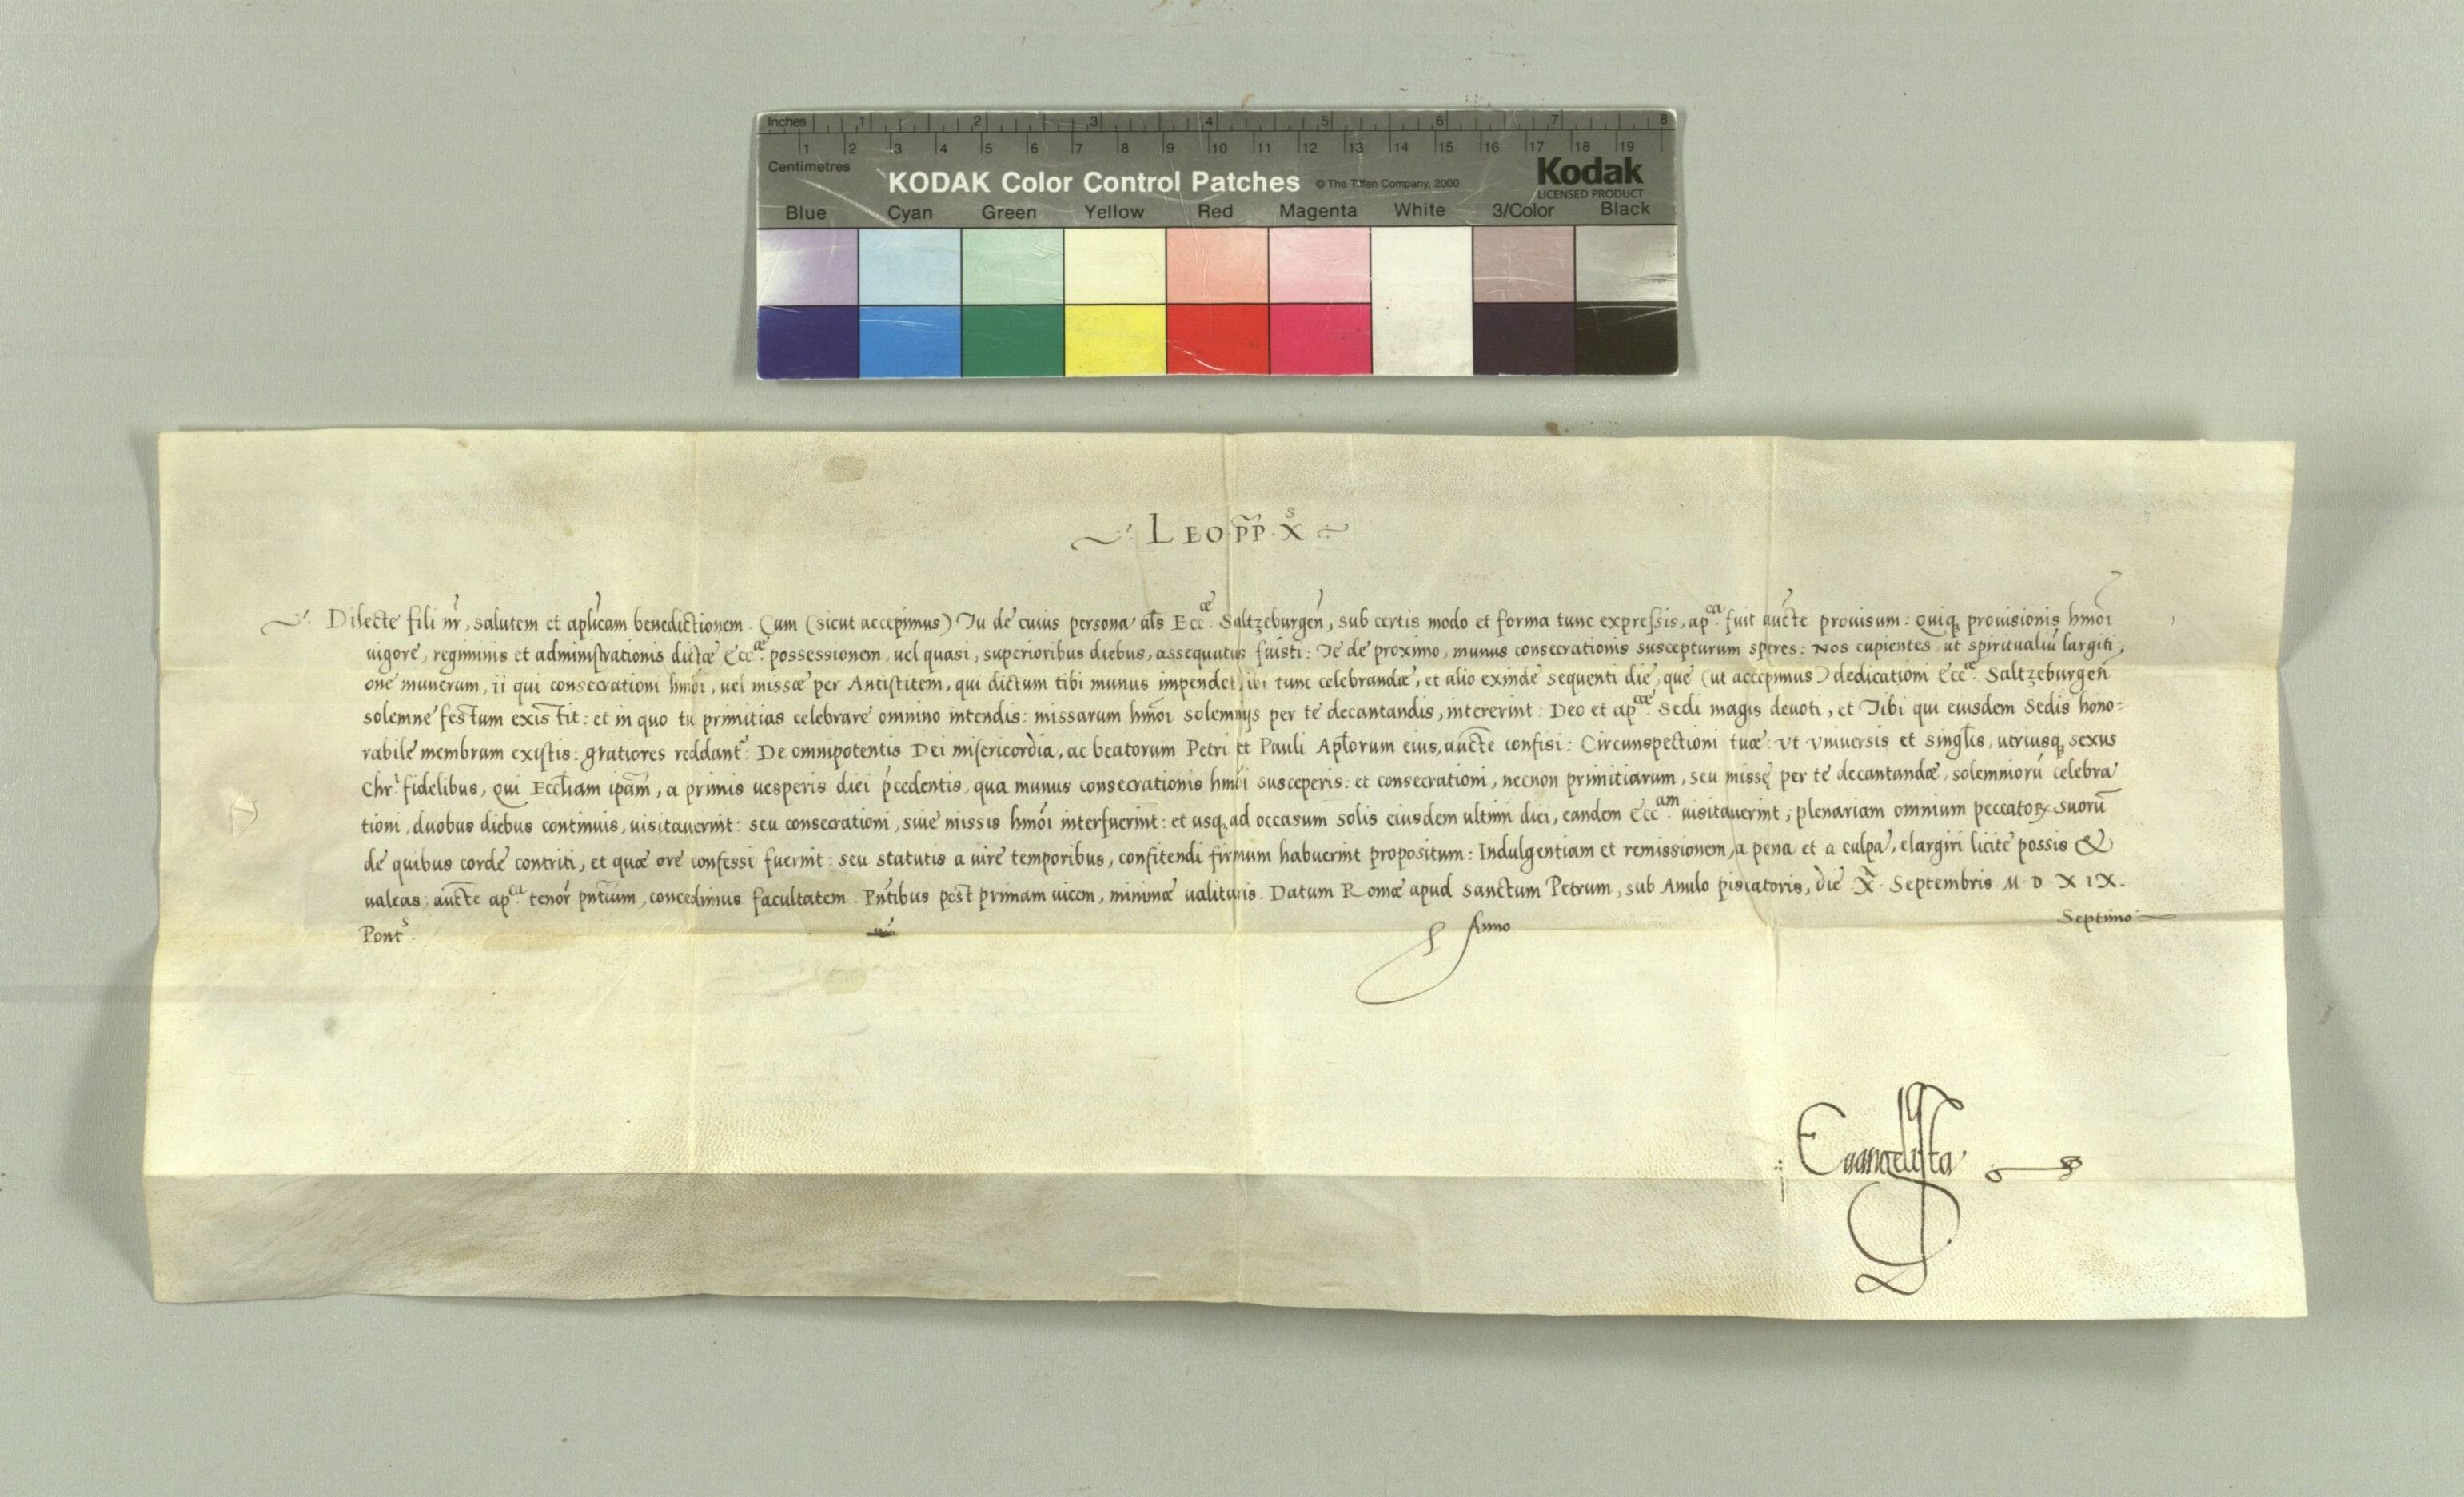 Inches 1 2 3 4 5 6 7 8
1 2 3 4 5 6 7 8 9 10 11 12 13 14 15 16 17 18 19
Centimetres
KODAK Color Control Patches © The Tiffen Company, 2000 Kodak
LICENSED PRODUCT
Blue Cyan Green Yellow Red Magenta White 3/Color Black
LEO PP̃ X^s
Dilecte fili nr̃, salutem et aplicam benedictionem. Cum (sicut accepimus) Tu de cuius persona al̃s Ecc^æ. Saltzeburgeñ, sub certis modo et forma tunc expressis, ap^ca. fuit aucte prouisum: Quiq; prouisionis hmõi
uigore, regiminis et administrationis dictæ Ecc^æ. possessionem, uel quasi, superioribus diebus, assequutus fuisti: Te de proximo, munus consecrationis suscepturum speres: Nos cupientes, ut spiritualiũ largiti,
one munerum, ii qui consecrationi hmõi, uel missæ per Antistitem, qui dictum tibi munus impendet, ibi tunc celebrandæ, et alio exinde sequenti die, que (ut accepimus) dedicationi Ecc^æ. Saltzeburgeñ
solemne festum existit: et in quo tu primitias celebrare omnino intendis: missarum hmõi solemnijs per te decantandis, intererint: Deo et ap^cæ. Sedi magis deuoti, et Tibi qui eiusdem Sedis hono=
rabile membrum existis: gratiores reddant^r: De omnipotentis Dei misericordia, ac beatorum Petri et Pauli Apl̃orum eius, aucte confisi: Circunspectioni tuæ: Vt Vniuersis et singl̃is, utriusq; sexus
Chr̃i fidelibus, qui Eccl̃iam ip̃am, a primis uesperis diei p̃cedentis, qua munus consecrationis hmõi susceperis: et consecrationi, necnon primitiarum, seu missę per te decantandæ, solemniorũ celebra
tioni, duobus diebus continuis, uisitauerint: seu consecrationi, siue missis hmõi interfuerint: et usq; ad occasum solis eiusdem ultimi diei, eandem Ecc^am. uisitauerint; plenariam omnium peccatoꝝ suorũ
de quibus corde contriti, et quæ ore confessi fuerint: seu statutis a iure temporibus, confitendi firmum habuerint propositum: Indulgentiam et remissionem, a pena et a culpa, elargiri licite possis &
ualeas; aucte ap^ca. tenor̃ pñtium, concedimus facultatem. Pñtibus post primam uicem, minime ualituris. Datum Romæ apud Sanctum Petrum, sub Anulo piscatoris, die X̃. Septembris M. D. XIX.
Pont^s. Anno Septimo
Euangelista